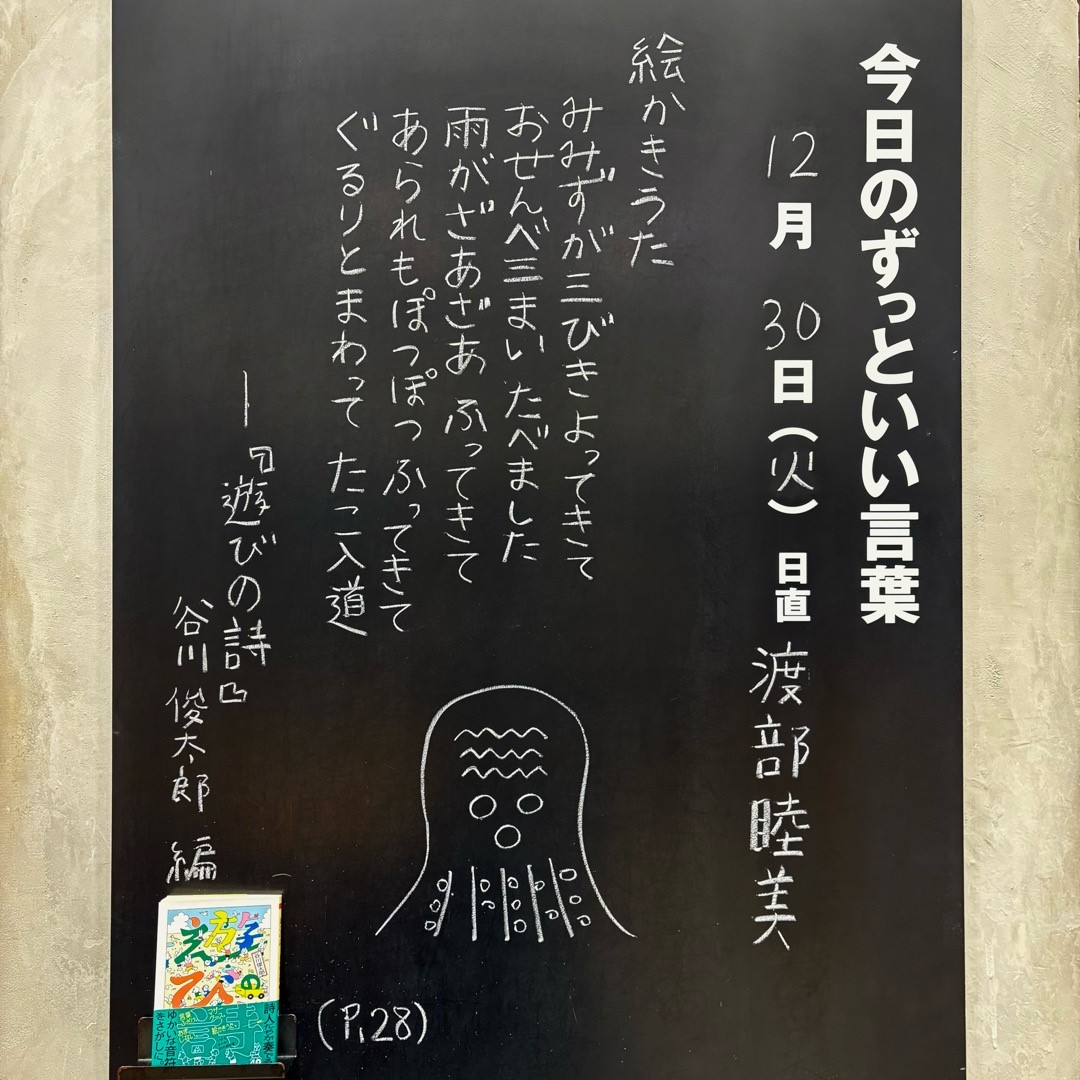 今日のずっといい言葉
12月30日(火) 日直 渡部睦美
絵かきうた
みみずが三びきよってきて
おせんべ三まい たべました
雨がざあざあ ふってきて
あられもぽつぽつ ふってきて
ぐるりとまわって たこ入道
―『遊びの詩』
谷川 俊太郎 編
(P.28)
遊びの
詩人たちが奏で
ゆかいな音符
をさがしに。